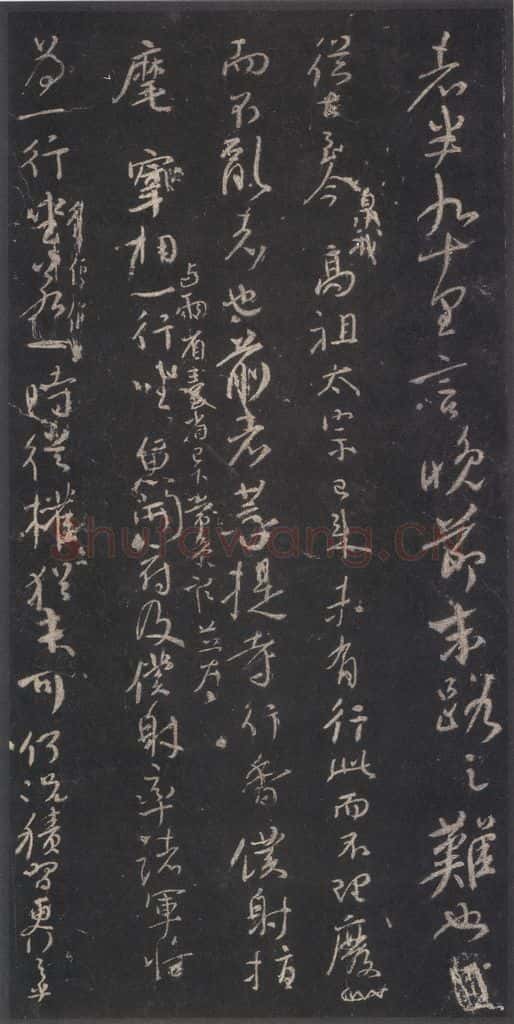 者半九十里言晚節末路之難也
從古至今 高祖太宗已來未有行此而不理廢此
而不亂者也前者菩提寺行香僕射指
與兩省臺省已下常參官並為
麾 宰相一行坐魚開府及僕射率諸軍將
為一行坐若一時從權猶未可何況積習更行之乎
Shufawang.CN